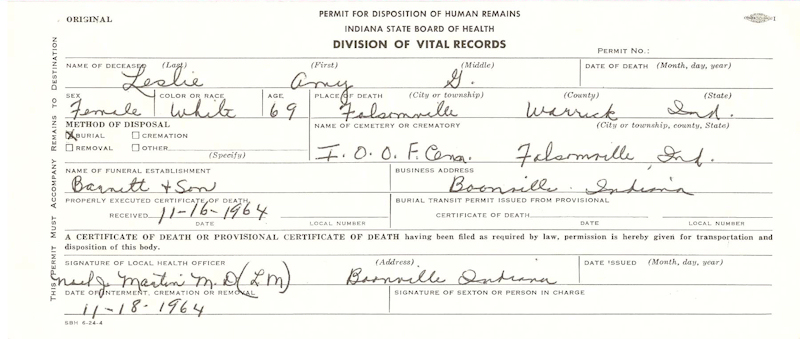 ORIGINAL
PERMIT FOR DISPOSITION OF HUMAN REMAINS
INDIANA STATE BOARD OF HEALTH
DIVISION OF VITAL RECORDS
PERMIT NO.:
THIS PERMIT MUST ACCOMPANY REMAINS TO DESTINATION
NAME OF DECEASED (Last) (First) (Middle) DATE OF DEATH (Month, day, year)
Leslie Amy G.
SEX COLOR OR RACE AGE PLACE OF DEATH (City or township) (County) (State)
Female White 69 Folsomville Warrick Ind.
METHOD OF DISPOSAL NAME OF CEMETERY OR CREMATORY (City or township, county, State)
X BURIAL CREMATION
REMOVAL OTHER (Specify)
I.O.O.F. Cem. Folsomville, Ind.
NAME OF FUNERAL ESTABLISHMENT BUSINESS ADDRESS
Barnett & Son Boonville Indiana
PROPERLY EXECUTED CERTIFICATE OF DEATH BURIAL TRANSIT PERMIT ISSUED FROM PROVISIONAL
RECEIVED 11-16-1964 CERTIFICATE OF DEATH
DATE LOCAL NUMBER DATE LOCAL NUMBER
A CERTIFICATE OF DEATH OR PROVISIONAL CERTIFICATE OF DEATH having been filed as required by law, permission is hereby given for transportation and
disposition of this body.
SIGNATURE OF LOCAL HEALTH OFFICER (Address) DATE ISSUED (Month, day, year)
J. Martin M.D (LM) Boonville Indiana
DATE OF INTERMENT, CREMATION OR REMOVAL SIGNATURE OF SEXTON OR PERSON IN CHARGE
11-18-1964
SBH 6-24-4